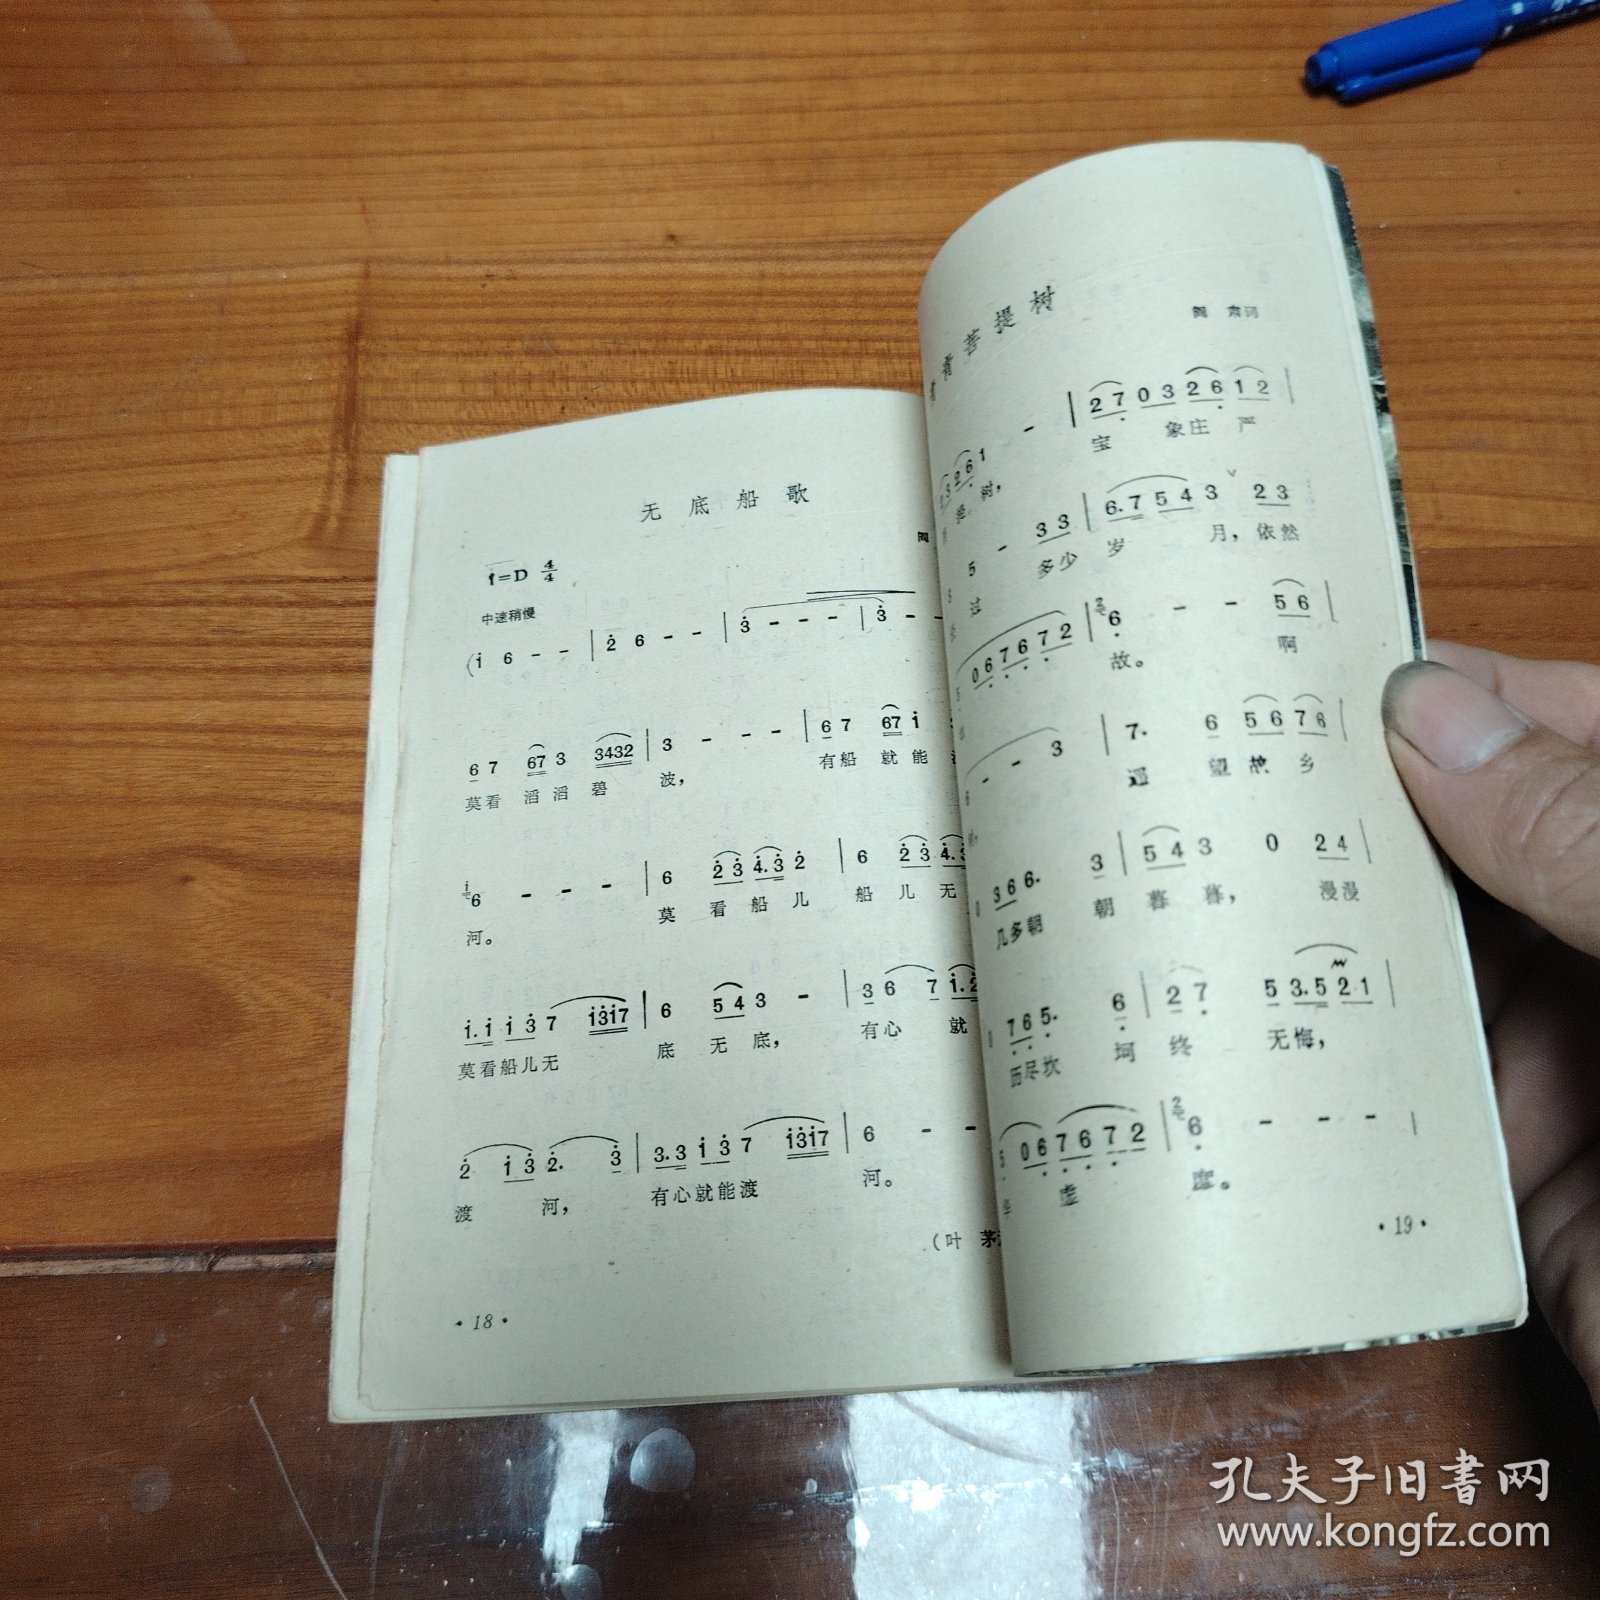 无底船歌
阎
1=D 4/4
中速稍慢
(i 6 - - | 2 6 - - | 3 - - - | 3 - -
6 7 67 3 3432 | 3 - - - | 6 7 67 i
莫看 滔滔 碧 波， 有船 就能
6 - - - | 6 2 3 4.3 2 | 6 2 3 4.3
河。 莫 看 船 儿 船 儿 无
i.i i 3 7 i3i7 | 6 5 4 3 - | 3 6 7 i.2
莫看船儿无 底 无 底， 有心 就
2 i 3 2. 3 | 3.3 i 3 7 i3i7 | 6 - -
渡 河， 有心就能渡 河。
(叶 茅
·18·
青菩提树
阎 肃词
3 2 6 1 - | 2 7 0 3 2 6 1 2 |
树， 宝 象庄 严
5 - 3 3 | 6.7 5 4 3 2 3
过 多少 岁 月，依然
0 6 7 6 7 2 | 6 - - 5 6 |
故。 啊
6 - - 3 | 7. 6 5 6 7 6 |
遥 望 故 乡
3 6 6. 3 | 5 4 3 0 2 4 |
几多朝 朝 暮 暮， 漫漫
7 6 5. 6 | 2 7 5 3.5 2 1 |
历尽坎 坷 终 无悔，
5 0 6 7 6 7 2 | 6 - - - |
虚 度。
·19·
孔夫子旧书网
www.kongfz.com